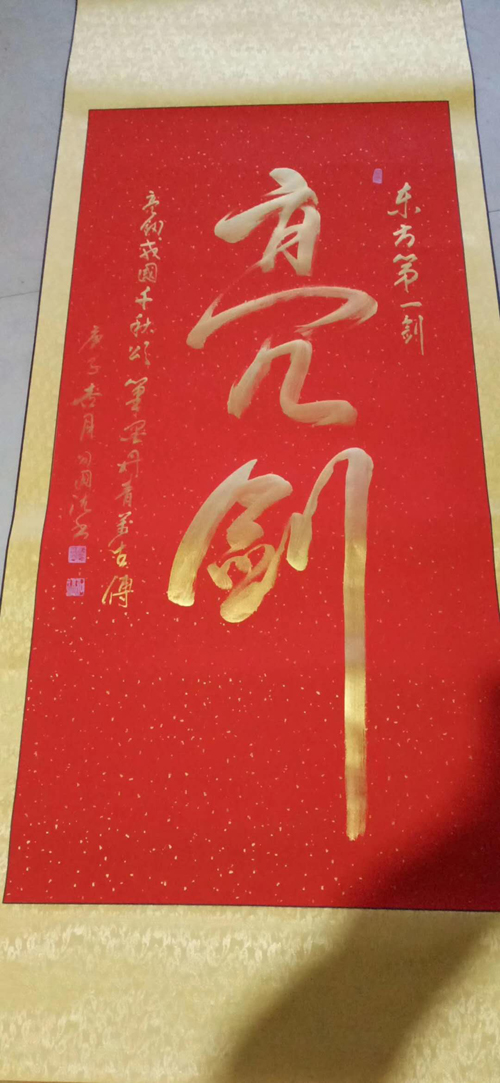 东方第一剑
亮剑
亮剑我国千秋颂
笔墨丹青万古传
庚子杏月